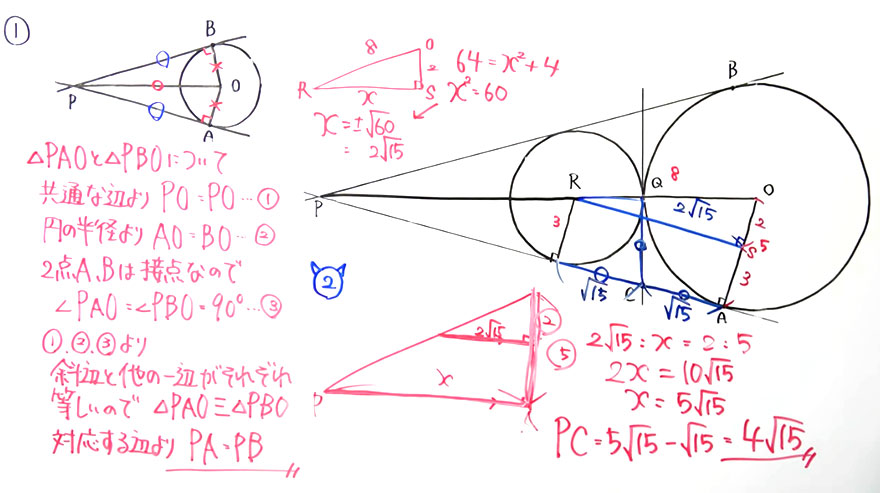 ①
B
P
O
A
△PAOと△PBOについて
共通な辺より PO=PO…①
円の半径より AO=BO…②
2点A、Bは接点なので
∠PAO=∠PBO=90°…③
①、②、③より
斜辺と他の一辺がそれぞれ
等しいので △PAO≡△PBO
対応する辺より PA=PB
8
O
2
R
x
S
64=x²+4
x²=60
x=±√60
=2√15
B
P
R
Q
8
O
2√15
2
S
5
3
3
√15
C
√15
A
②
2√15
②
⑤
x
P
2√15:x=2:5
2x=10√15
x=5√15
PC=5√15-√15=4√15